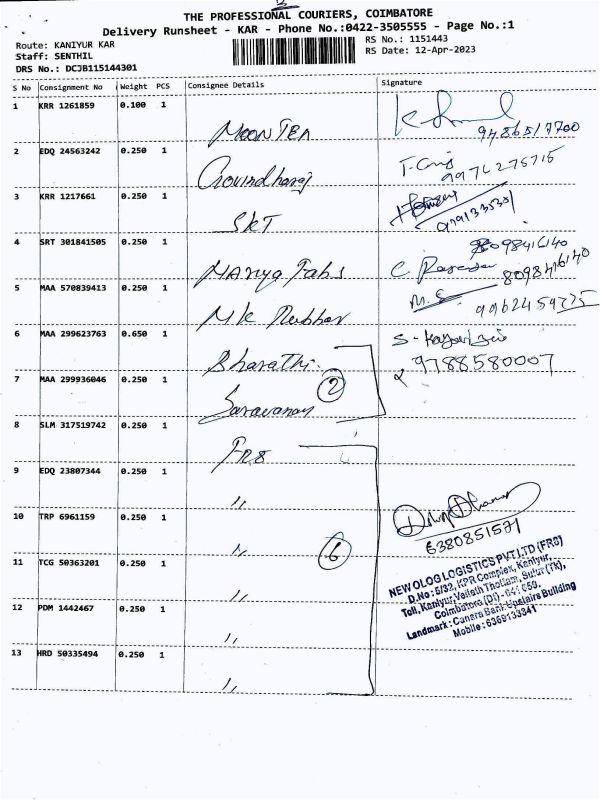 THE PROFESSIONAL COURIERS, COIMBATORE
Delivery Runsheet - KAR - Phone No.:0422-3505555 - Page No.:1
Route: KANIYUR KAR RS No.: 1151443
Staff: SENTHIL RS Date: 12-Apr-2023
DRS No.: DCJB115144301
S No Consignment No Weight PCS Consignee Details Signature
1 KRR 1261859 0.100 1 MOON TEA 9486517700
2 EDQ 24563242 0.250 1 Govindharaj 9976275715
3 KRR 1217661 0.250 1 SKT
4 SRT 301841505 0.250 1 MANYA Fabs 8098416140
5 MAA 570839413 0.250 1 MK Rubber M.S 9962459775
6 MAA 299623763 0.650 1 Bharathi. 9788580007
7 MAA 299936046 0.250 1 Saravanan 2
8 SLM 317519742 0.250 1 FR8
9 EDQ 23807344 0.250 1 ,,
10 TRP 6961159 0.250 1 ,, 6 6380851571
11 TCG 50363201 0.250 1 ,,
12 PDM 1442467 0.250 1 ,,
13 HRD 50335494 0.250 1 ,,
NEW OLOG LOGISTICS PVT LTD (FR8)
D.No: 5/33, KPR Complex, Kaniyur,
Toll, Kaniyur, Thottam, Sulur (Tk),
Coimbatore (Dt)
Landmark : Canara Bank Upstairs Building
Mobile : 6369133341